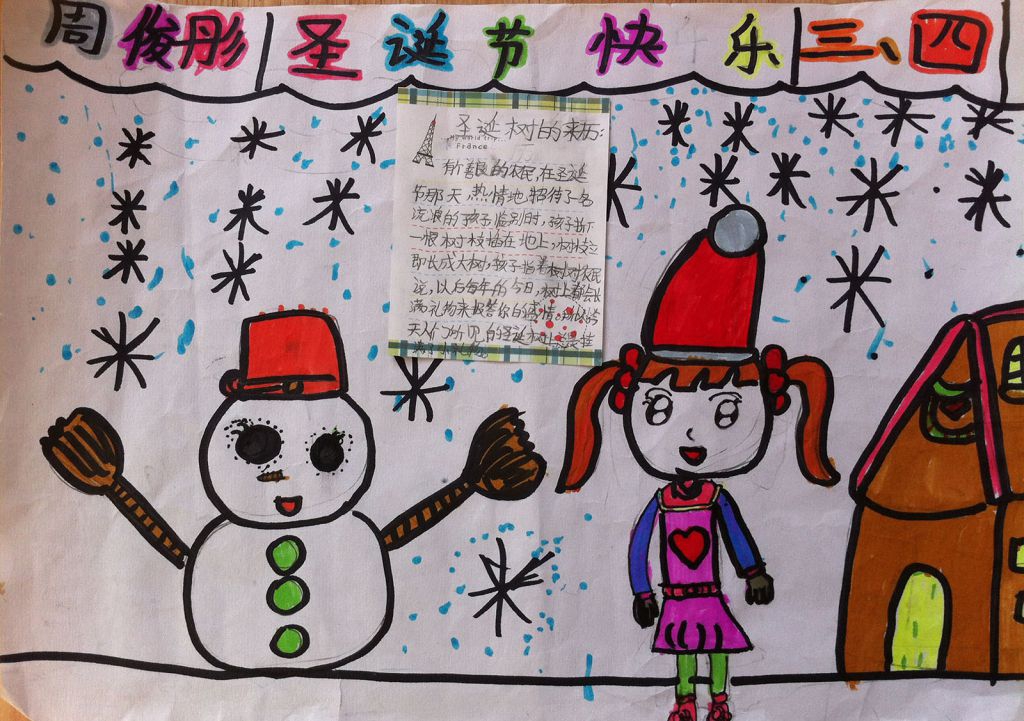 周俊彤 圣诞节快乐 三、四
圣诞树的来历:
France
有个善良的农民,在圣诞
节那天热情地招待了名
流浪的孩子临别时,孩子折了
一根树枝插在地上,树枝立
即长成大树,孩子指着树对农民
说,以后每年的今日,树上都会长
满礼物来报答你的盛情。所以今
天人们所见的圣诞树上总是挂